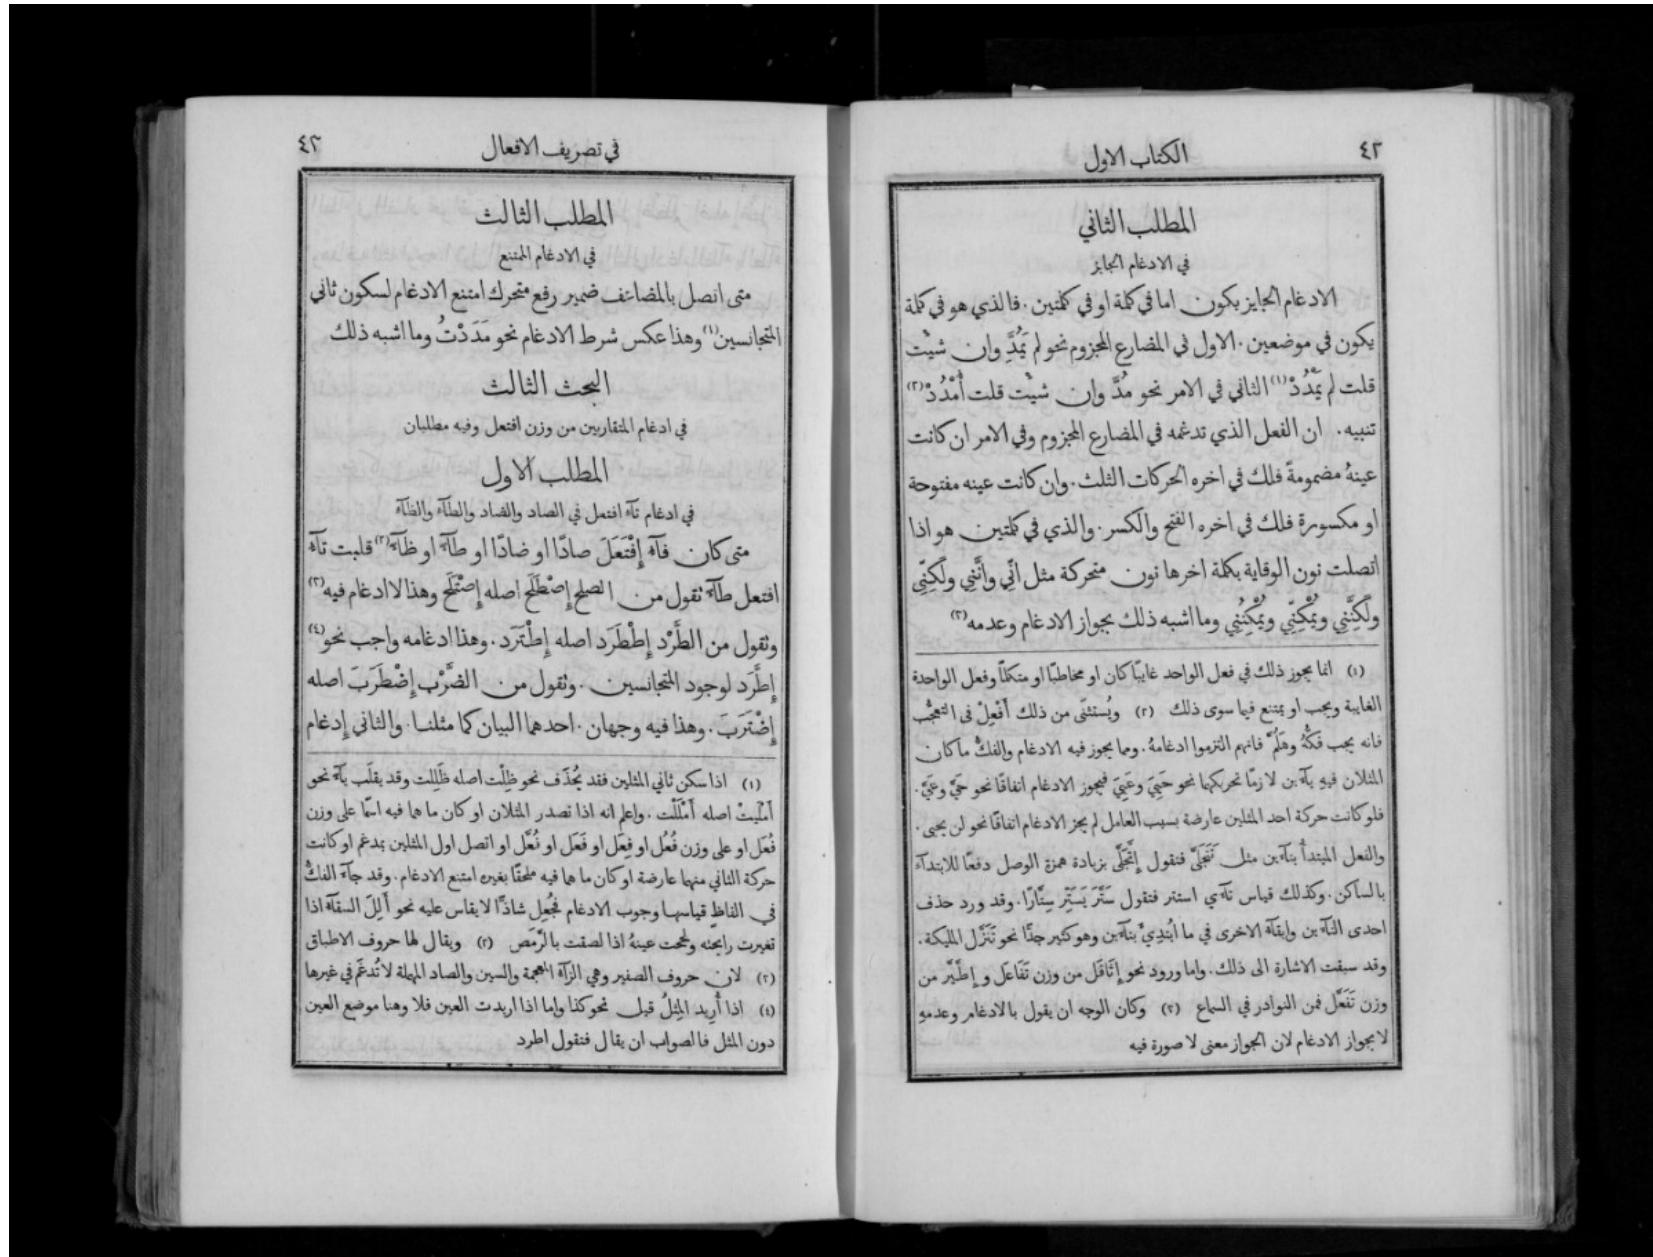 ٤٢
الكتاب الاول
المطلب الثاني
في الادغام الجايز
الادغام الجايز يكون اما في كلمة او في كلمتين. فالذي هو في كلمة
يكون في موضعين. الاول في المضارع المجزوم نحو لم يَمُدَّ وان شيْت
قلت لم يَمْدُدْ (١) الثاني في الامر نحو مُدَّ وان شيْت قلت أُمْدُدْ (٢)
تنبيه. ان الفعل الذي تدغمه في المضارع المجزوم وفي الامر ان كانت
عينهُ مضمومةً فلك في اخره الحركات الثلث. وان كانت عينه مفتوحة
او مكسورة فلك في اخره الفتح والكسر. والذي في كلمتين هو اذا
اتصلت نون الوقاية بكلمة اخرها نون متحركة مثل انّي وانَّنِي ولَكِنّي
ولَكِنَّنِي ويُمْكِنّي ويُمْكِنُنِي وما اشبه ذلك بجواز الادغام وعدمه (٣)
(١) انما يجوز ذلك في فعل الواحد غايبًا كان او مخاطبًا او متكلمًا وفعل الواحدة
الغايبة ويجب او يمتنع فيما سوى ذلك (٢) ويُستثنَى من ذلك أَفْعِلْ في التعجُّب
فانه يجب فكُّهُ وهَلُمَّ فانهم التزموا ادغامهُ. ومما يجوز فيه الادغام والفكُّ ما كان
المثلان فيهِ يآءَين لازمًا تحريكهما نحو حَيِيَ وعَيِيَ فيجوز الادغام اتفاقًا نحو حَيَّ وعَيَّ.
فلو كانت حركة احد المثلين عارضة بسبب العامل لم يجز الادغام اتفاقًا نحو لن يحيى.
والفعل المبتدأُ بتآءَين مثل تَتَجَلَّى فتقول إِتَّجَلَّى بزيادة همزة الوصل دفعًا للابتدآء
بالساكن. وكذلك قياس تآءَي استتر فتقول سَتَّرَ يَسَتِّر سِتَّارًا. وقد ورد حذف
احدى التآءَين وابقآء الاخرى في ما ابُتدِيَ بتآءَين وهو كثير جدًّا نحو تَنَزَّل المليكة.
وقد سبقت الاشارة الى ذلك. واما ورود نحو إِثَّاقَل من وزن تَفَاعَل و إِطَّيَّر من
وزن تَفَعَّل فمن النوادر في السماع (٣) وكان الوجه ان يقول بالادغام وعدمهِ
لا بجواز الادغام لان الجواز معنى لا صورة فيه
في تصريف الافعال
٤٣
المطلب الثالث
في الادغام الممتنع
متى اتصل بالمضاعَف ضمير رفع متحرك امتنع الادغام لسكون ثاني
المتجانسين (١) وهذا عكس شرط الادغام نحو مَدَدْتُ وما اشبه ذلك
البحث الثالث
في ادغام المتقاربين من وزن افتعل وفيه مطلبان
المطلب الاول
في ادغام تآء افتعل في الصاد والضاد والطآء والظآء
متى كان فآء إِفْتَعَلَ صادًا او ضادًا او طآءً او ظآءً (٢) قلبت تآء
افتعل طآءً تقول من الصلح إِصْطَلَح اصله إِصْتَلَح وهذا لا ادغام فيه (٣)
وتقول من الطَّرْد إِطْطَرَد اصله إِطْتَرَد. وهذا ادغامه واجب نحو (٤)
إِطَّرَد لوجود المتجانسين. وتقول من الضَّرْب إِضْطَرَبَ اصله
إِضْتَرَبَ. وهذا فيه وجهان. احدهما البيان كما مثلنا. والثاني إِدغام
(١) اذا سكن ثاني المثلين فقد يُحْذَف نحو ظِلْت اصله ظَلِلت وقد يقلَب يآءً نحو
أمليتُ اصله أَمْلَلْت. واعلم انه اذا تصدر المثلان او كان ما هما فيه اسمًا على وزن
فُعَل او على وزن فُعُل او فِعَل او فَعَل او نُعَّل او اتصل اول المثلين بمدغم او كانت
حركة الثاني منهما عارضة او كان ما هما فيه ملحقًا بغيره امتنع الادغام. وقد جآء الفكُّ
في الفاظٍ قياسها وجوب الادغام فجُعِل شاذًّا لا يقاس عليه نحو أَلِلَ السقآء اذا
تغيرت رايحته ولححت عينهُ اذا لصقت بالرَّمَص (٢) ويقال لها حروف الاطباق
(٣) لان حروف الصفير وهي الزآء المعجمة والسين والصاد المهملة لا تُدغَم في غيرها
(٤) اذا أُرِيد المِثلُ قيل نحو كذا واما اذا اريدت العين فلا وهنا موضع العين
دون المثل فالصواب ان يقال فتقول اطرد